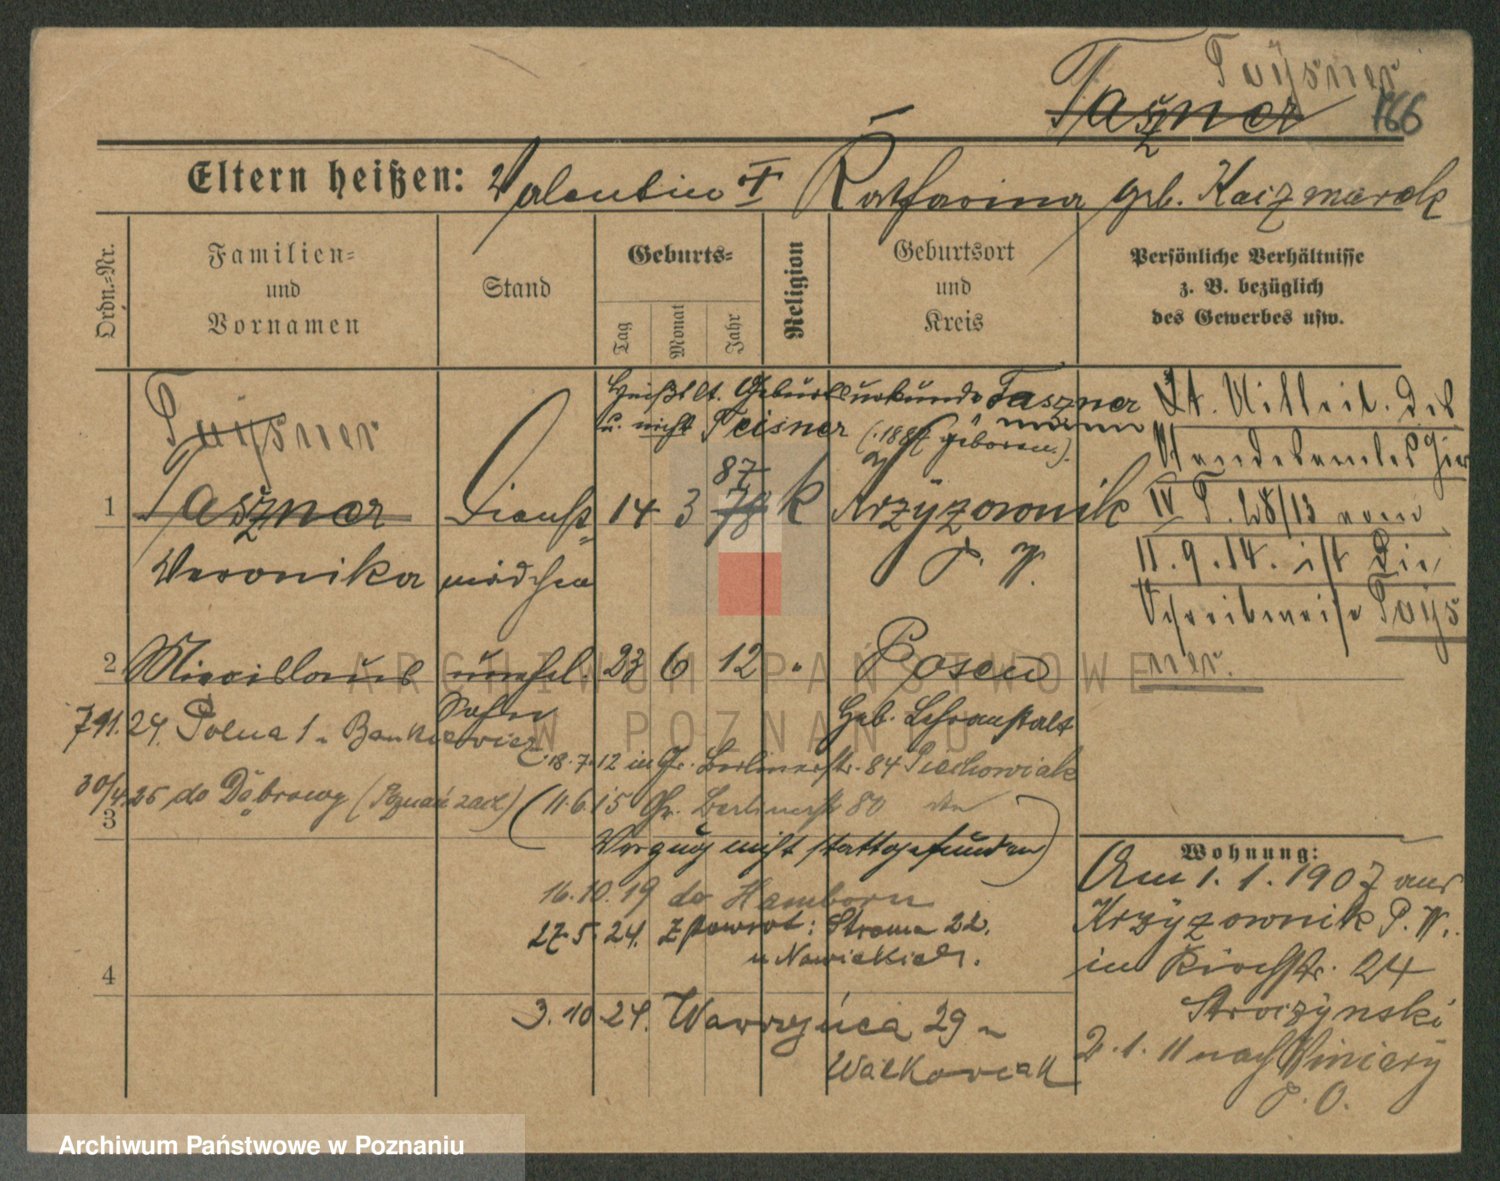 Tuÿsner
Taszner 166
Eltern heißen: Valentin † Katharina geb. Kaczmarek
Ordn.-Nr.
Familien-
und
Vornamen
Stand
Geburts-
Tag
Monat
Jahr
Religion
Geburtsort
und
Kreis
Persönliche Verhältnisse
z. B. bezüglich
des Gewerbes usw.
Heißt lt. Geburtsurkunde Taszner
u. nicht Teisner (1887 geboren.)
Tuÿsner
87
1 Taszner Dienst= 14 3 78 k Krzÿzownik
Veronika mädchen P. W.
Lt. Mitteil. des
Standesamtes hier
IV T. 28/13 vom
11.9.14. ist die
Schreibweise Tuÿs
ner.
2 unehel. 23 6 12 " Posen
Sohn Geb. Lehranstalt
7/11. 24. Polna 1 - Bankiewicz
18.7.12 in Gr. Berlinerstr. 84 Piechowiak
30/4. 25 do Dąbrowy (Poznań zach)
(11.6.15 Gr. Berlinerstr 80
3
Verzug nicht stattgefunden)
16.10.19 do Hamborn
27.5.24. Zpowrot: Stroma 22.
u Nowickich.
4
3.10.24. Wawrzyńca 29 -
Walkowiak
Wohnung:
Am 1.1.1907 aus
Krzÿzownik P. W.
in Kirchstr. 24
Stroczÿnski
2.1.11 nach Winiarÿ
P. O.
ARCHIWUM PAŃSTWOWE
W POZNANIU
Archiwum Państwowe w Poznaniu